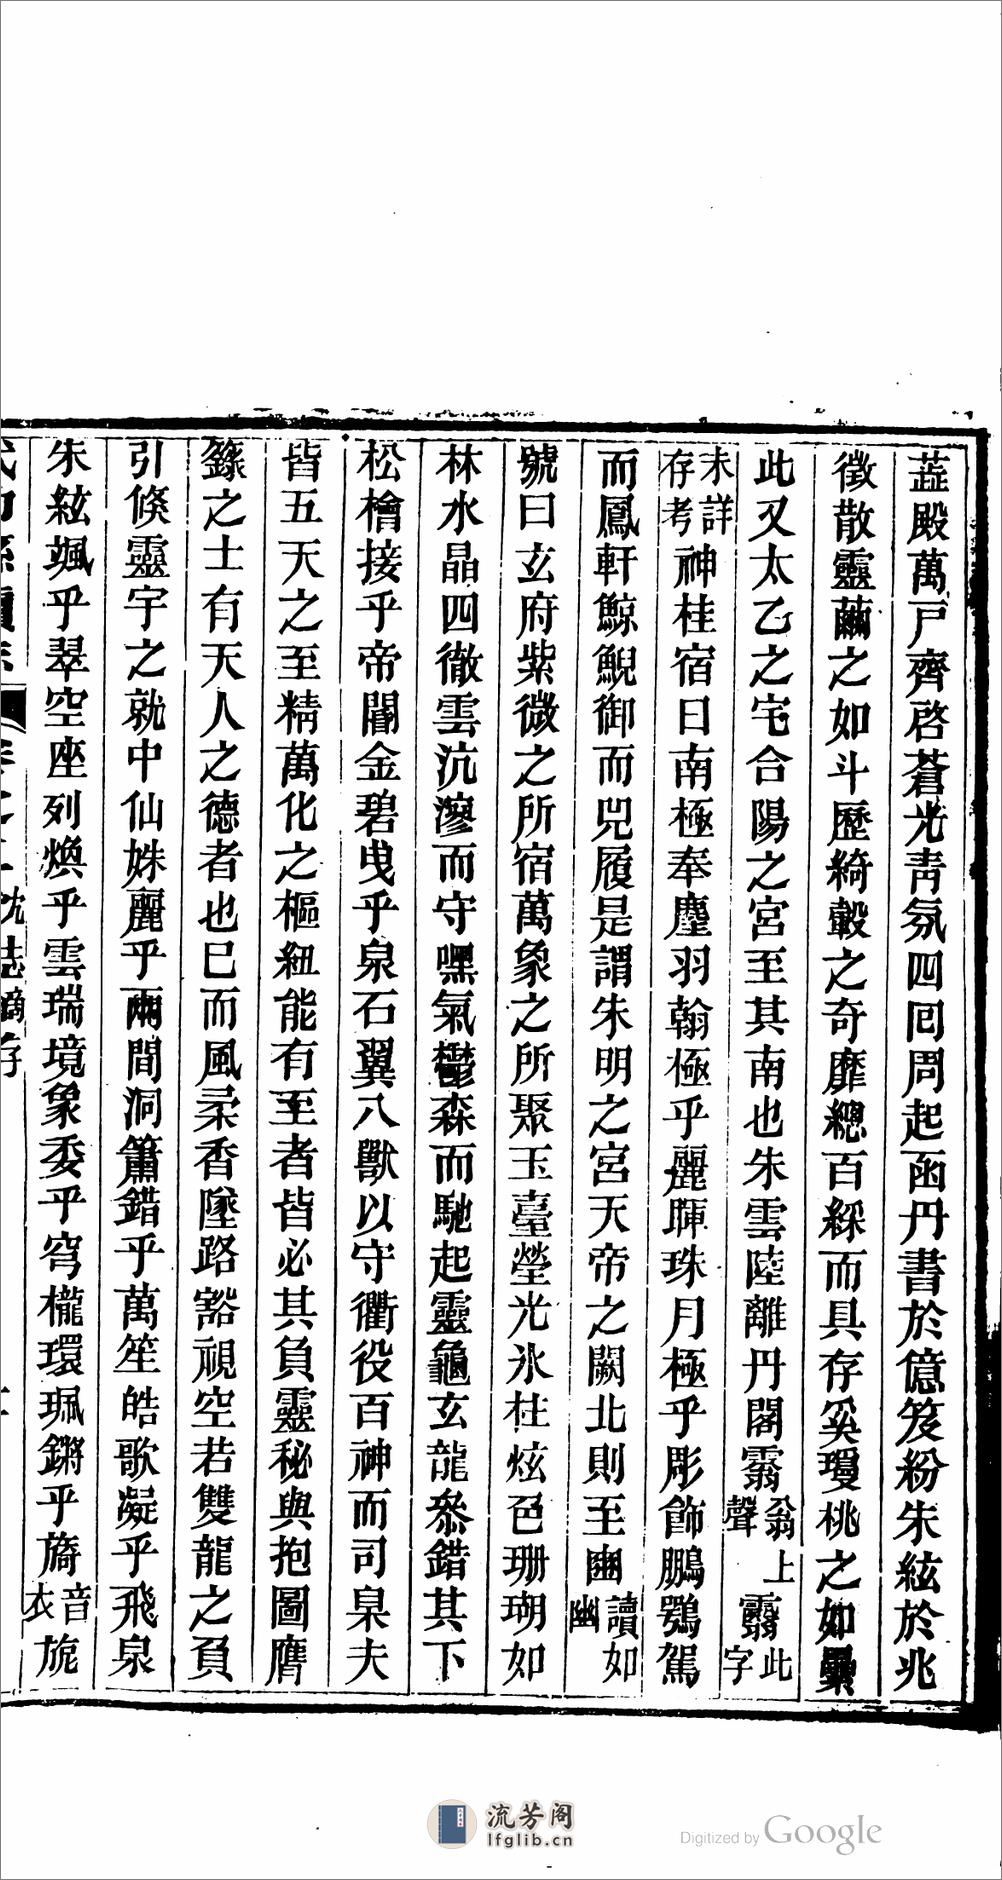 蕋殿萬戸齊啓蒼光靑氛四囘周起函丹書於億笈紛朱絃於兆
徵散靈繭之如斗歷綺縠之奇靡總百綵而具存奚瓊桃之如纍
此又太乙之宅合陽之宮至其南也朱雲陸離丹閣霧翁上聲霿此字
未詳存考神桂宿曰南極奉塵羽翰極乎麗暉珠月極乎彫飾鵬鶚駕
而鳳軒鯨鯢御而兕履是謂朱明之宮天帝之闕北則至豳讀如幽
號曰玄府紫微之所宿萬象之所聚玉臺瑩光氷柱炫色珊瑚如
林水晶四徹雲沆漻而守嘿氣鬱森而馳起靈龜玄龍叅錯其下
松檜接乎帝閽金碧曳乎泉石翼八獸以守衢役百神而司臬夫
皆五天之至精萬化之樞紐能有至者皆必其負靈秘與抱圖膺
籙之士有天人之德者也已而風柔香墜路豁視空若雙龍之負
引倏靈宇之就中仙姝麗乎兩間洞簫錯乎萬笙皓歌凝乎飛泉
朱絃颯乎翠空座列煥乎雲瑞境象委乎穹櫳環珮鏘乎旖音衣旎